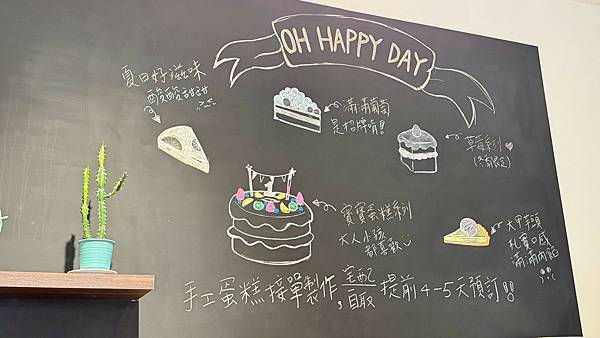 OH HAPPY DAY
夏日好滋味
酸酸甜甜
滿滿葡萄
是招牌唷!!
草莓系列
(冬季限定)
寶寶蛋糕系列
大人小孩
都喜歡
大甲芋頭
扎實口感
滿滿內餡
手工蛋糕接單製作,宅配
自取
提前4-5天預訂!!